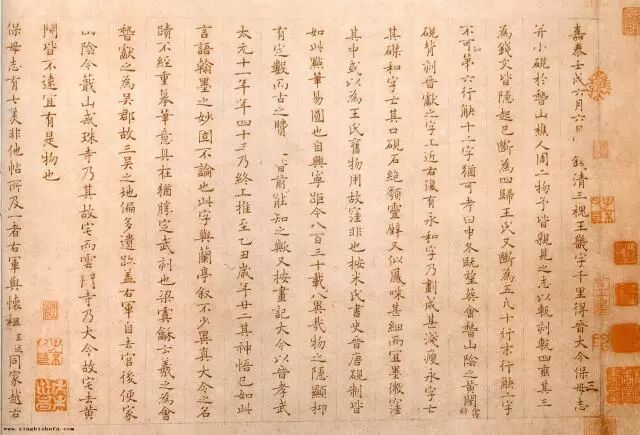 嘉泰壬戌六月六日錢清三槐王畿字千里得晉大令保母志
并小硯於稽山樵人周二物予皆親見之志以甎刻甎四垂其三
為錢文皆隱起已斷為四歸王氏又斷為五凡十行末行缺二字
不可知第六行缺十二字猶可考曰中冬既望葬會稽山陰之黃閍岡
硯背刻晉獻之字上近右復有永和字乃劃成甚淺瘦永字亡
其磔和字亡其口硯石絕類靈壁又似鳳咮甚細而宜墨微窪
其中或以為王氏舊物用故窪非也按米氏畫史晉唐硯制皆
如此點筆易圓也自興寧距今八百三十載八與哉物之隱顯抑
有定數而古之賢一日前能知之歟又按畫記大令以晉孝武
太元十一年年四十三乃終上推至乙丑歲年廿二其神悟已如此
言語翰墨之妙固不論也此字與蘭亭敘不少異真大令之名
蹟不經重摹筆意具在猶勝定武刻也梁虞龢云羲之為會
稽獻之為吳郡故三吳之地偏多遺跡蓋右軍自去官後便家
山陰今蕺山戒珠寺乃其故宅而雲門寺乃大令故宅去黃
閍皆不遠宜有是物也
保母志有七美非他帖所及一者右軍與懷祖王述同家越右
三
www.xingbishufa.com